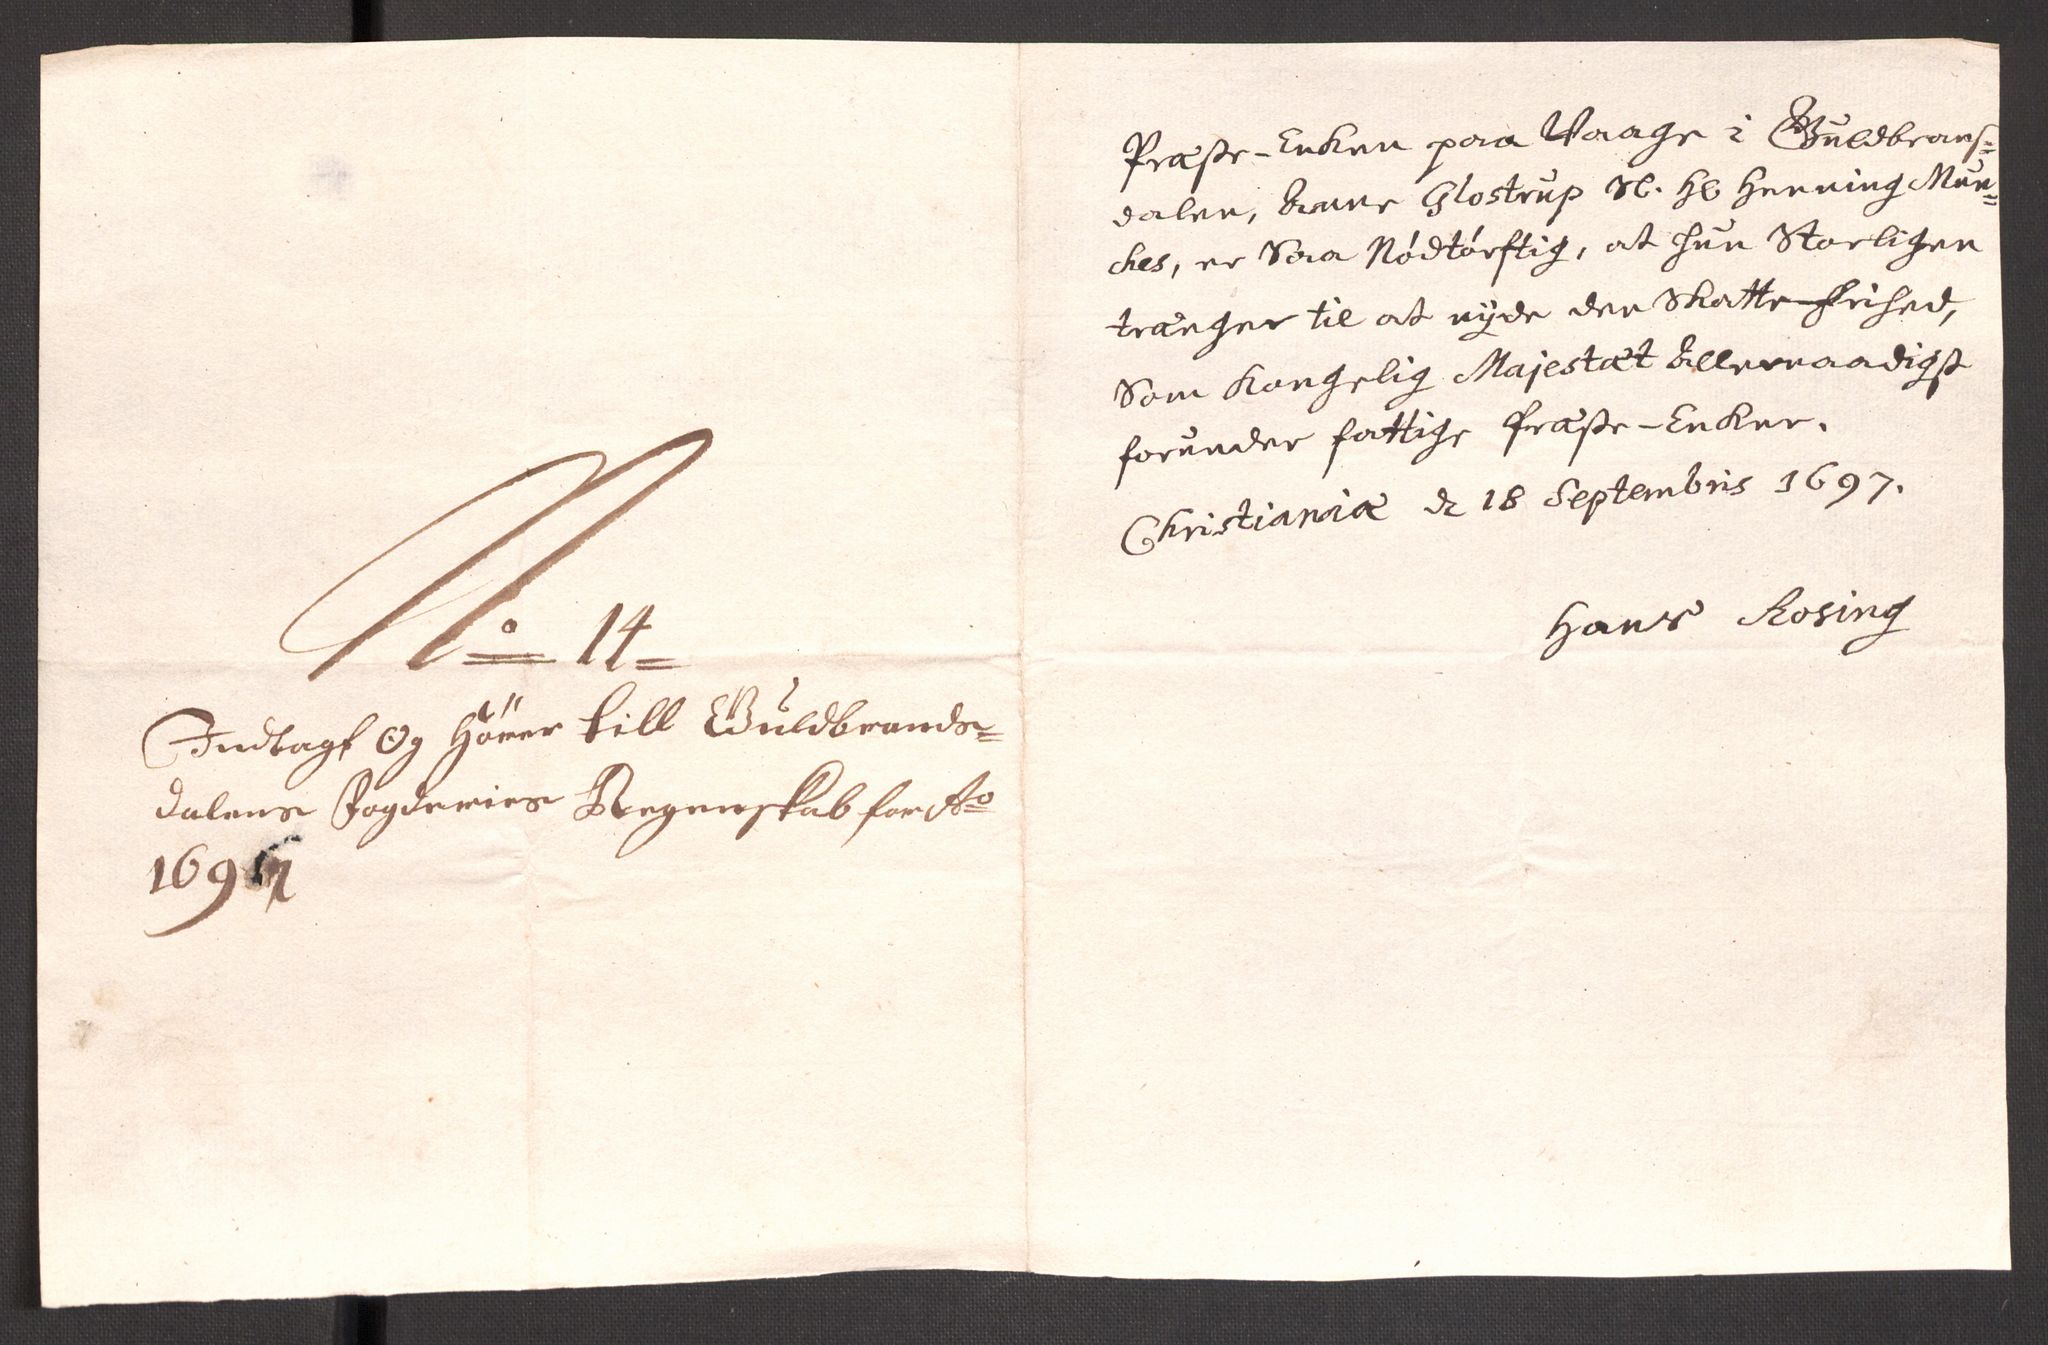 No 14
Indlagt Og Hörer till Guldbrands=
dalens Fogderies Regenskab for Ao
1697
Præste-Enken paa Waage i Guldbrans=
dalen, Anne Glostrup Sl. Hr Henning Mun=
ches, er Saa Nødtørftig, at hun Storligen
trænger til at nyde den Skatte-frihed,
Som Kongelig Majestæt Allernaadigst
forunder fattige Præste-Enker.
Christianiæ d 18 Septembris 1697.
Hans Rosing